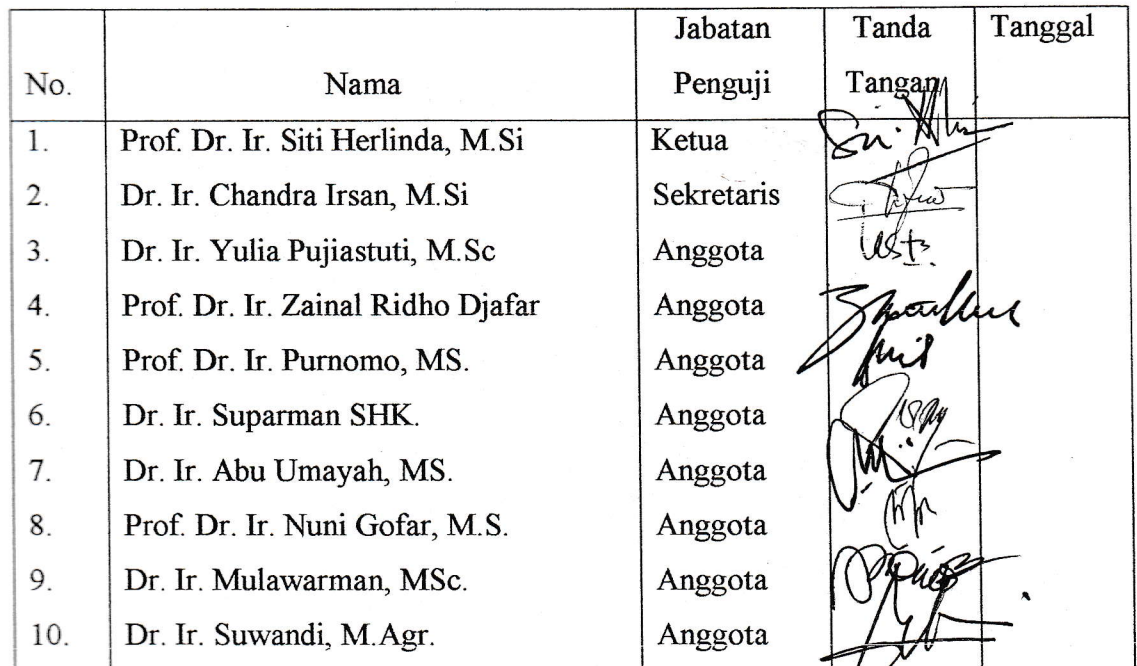 No. Nama Jabatan Penguji Tanda Tangan Tanggal
1. Prof. Dr. Ir. Siti Herlinda, M.Si Ketua
2. Dr. Ir. Chandra Irsan, M.Si Sekretaris
3. Dr. Ir. Yulia Pujiastuti, M.Sc Anggota
4. Prof. Dr. Ir. Zainal Ridho Djafar Anggota
5. Prof. Dr. Ir. Purnomo, MS. Anggota
6. Dr. Ir. Suparman SHK. Anggota
7. Dr. Ir. Abu Umayah, MS. Anggota
8. Prof. Dr. Ir. Nuni Gofar, M.S. Anggota
9. Dr. Ir. Mulawarman, MSc. Anggota
10. Dr. Ir. Suwandi, M.Agr. Anggota